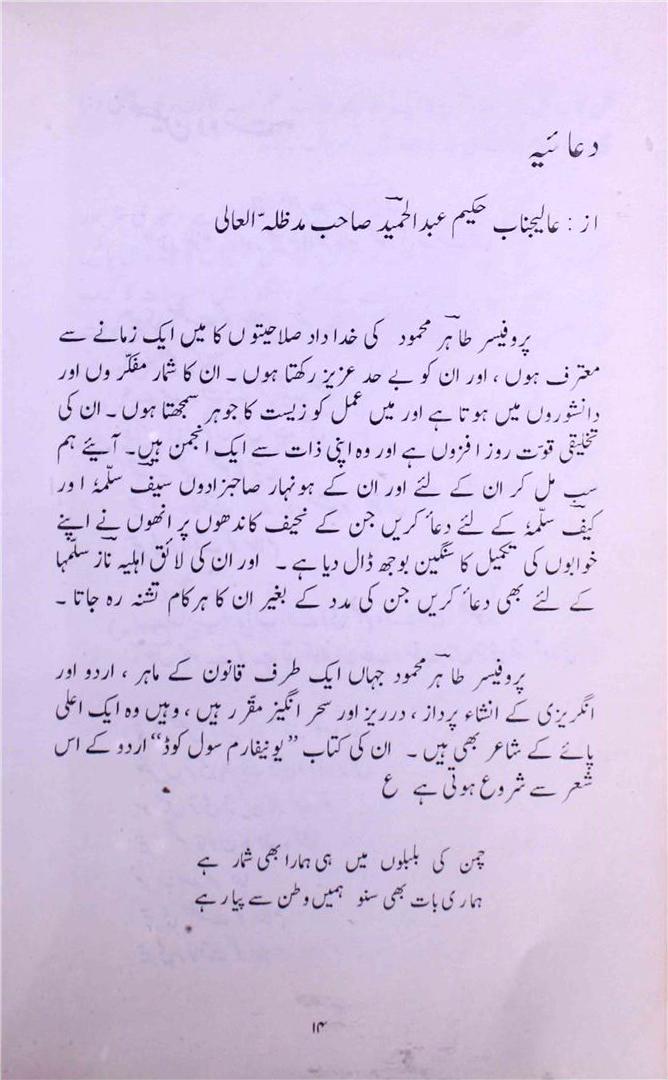 دعائیہ
از : عالیجناب حکیم عبدالحمید صاحب مدظلہ العالی
پروفیسر طاہر محمود کی خدا داد صلاحیتوں کا میں ایک زمانے سے
معترف ہوں ، اور ان کو بے حد عزیز رکھتا ہوں ۔ ان کا شمار مفکّروں اور
دانشوروں میں ہوتا ہے اور میں عمل کو زیست کا جوہر سمجھتا ہوں ۔ ان کی
تخلیقی قوّت روز افزوں ہے اور وہ اپنی ذات سے ایک انجمن ہیں ۔ آیئے ہم
سب مل کر ان کے لئے اور ان کے ہونہار صاحبزادوں سیف سلّمہٗ اور
کیف سلّمہٗ کے لئے دعاٴ کریں جن کے نحیف کاندھوں پر انھوں نے اپنے
خوابوں کی تکمیل کا سنگین بوجھ ڈال دیا ہے ۔ اور ان کی لائق اہلیہ ناز سلّمہا
کے لئے بھی دعاٴ کریں جن کی مدد کے بغیر ان کا ہر کام تشنہ رہ جاتا ۔
پروفیسر طاہر محمود جہاں ایک طرف قانون کے ماہر ، اردو اور
انگریزی کے انشاء پرداز ، درریز اور سحر انگیز مقّرر ہیں ، وہیں وہ ایک اعلی
پائے کے شاعر بھی ہیں ۔ ان کی کتاب ”یونیفارم سول کوڈ“ اردو کے اس
شعر سے شروع ہوتی ہے ع
چمن کی بلبلوں میں ہی ہمارا بھی شمار ہے
ہماری بات بھی سنو ہمیں وطن سے پیار ہے
۱۴